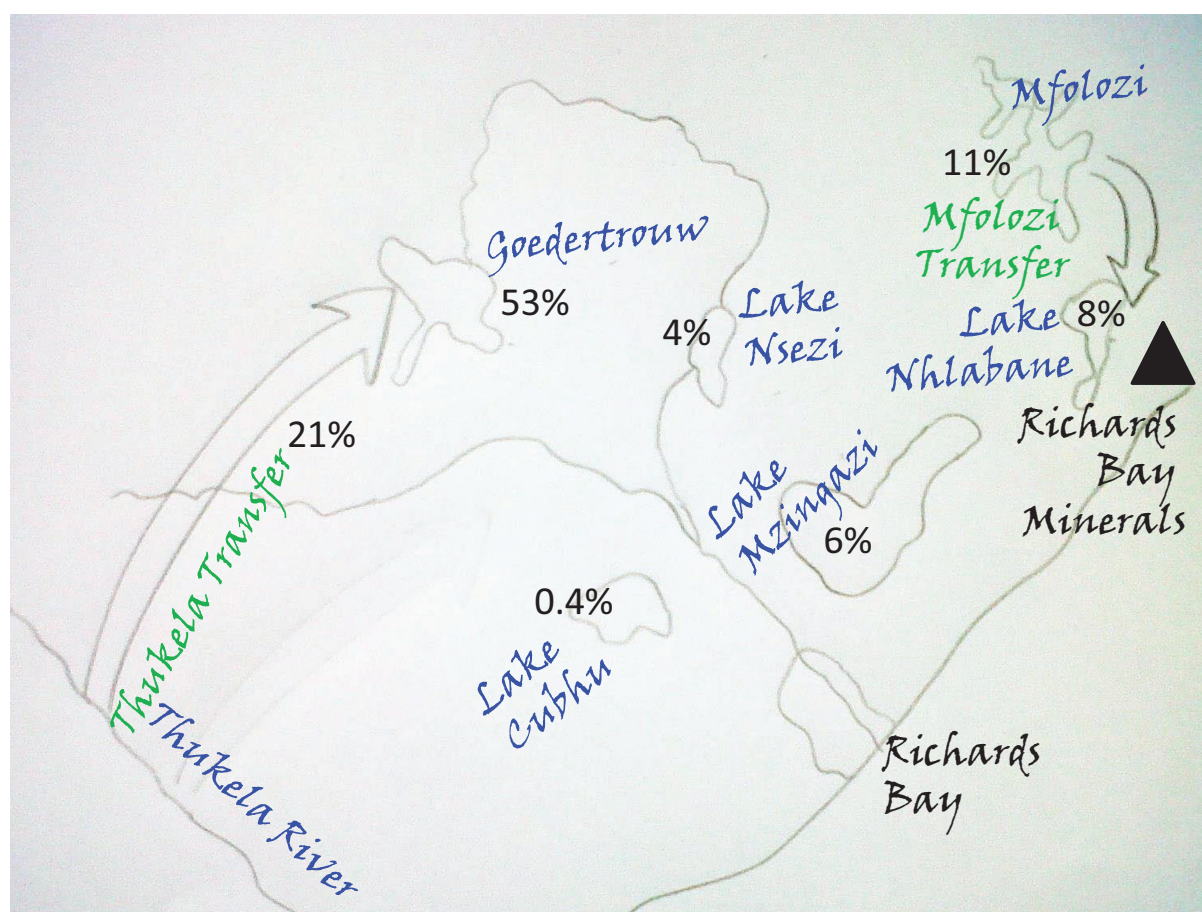 Mfolozi
11%
Mfolozi
Transfer
Goedertrouw
53%
Lake
Nsezi
4%
Lake
Nhlabane
8%
Richards
Bay
Minerals
21%
Thukela Transfer
Lake
Mzingazi
6%
0.4%
Lake
Cubhu
Thukela River
Richards
Bay